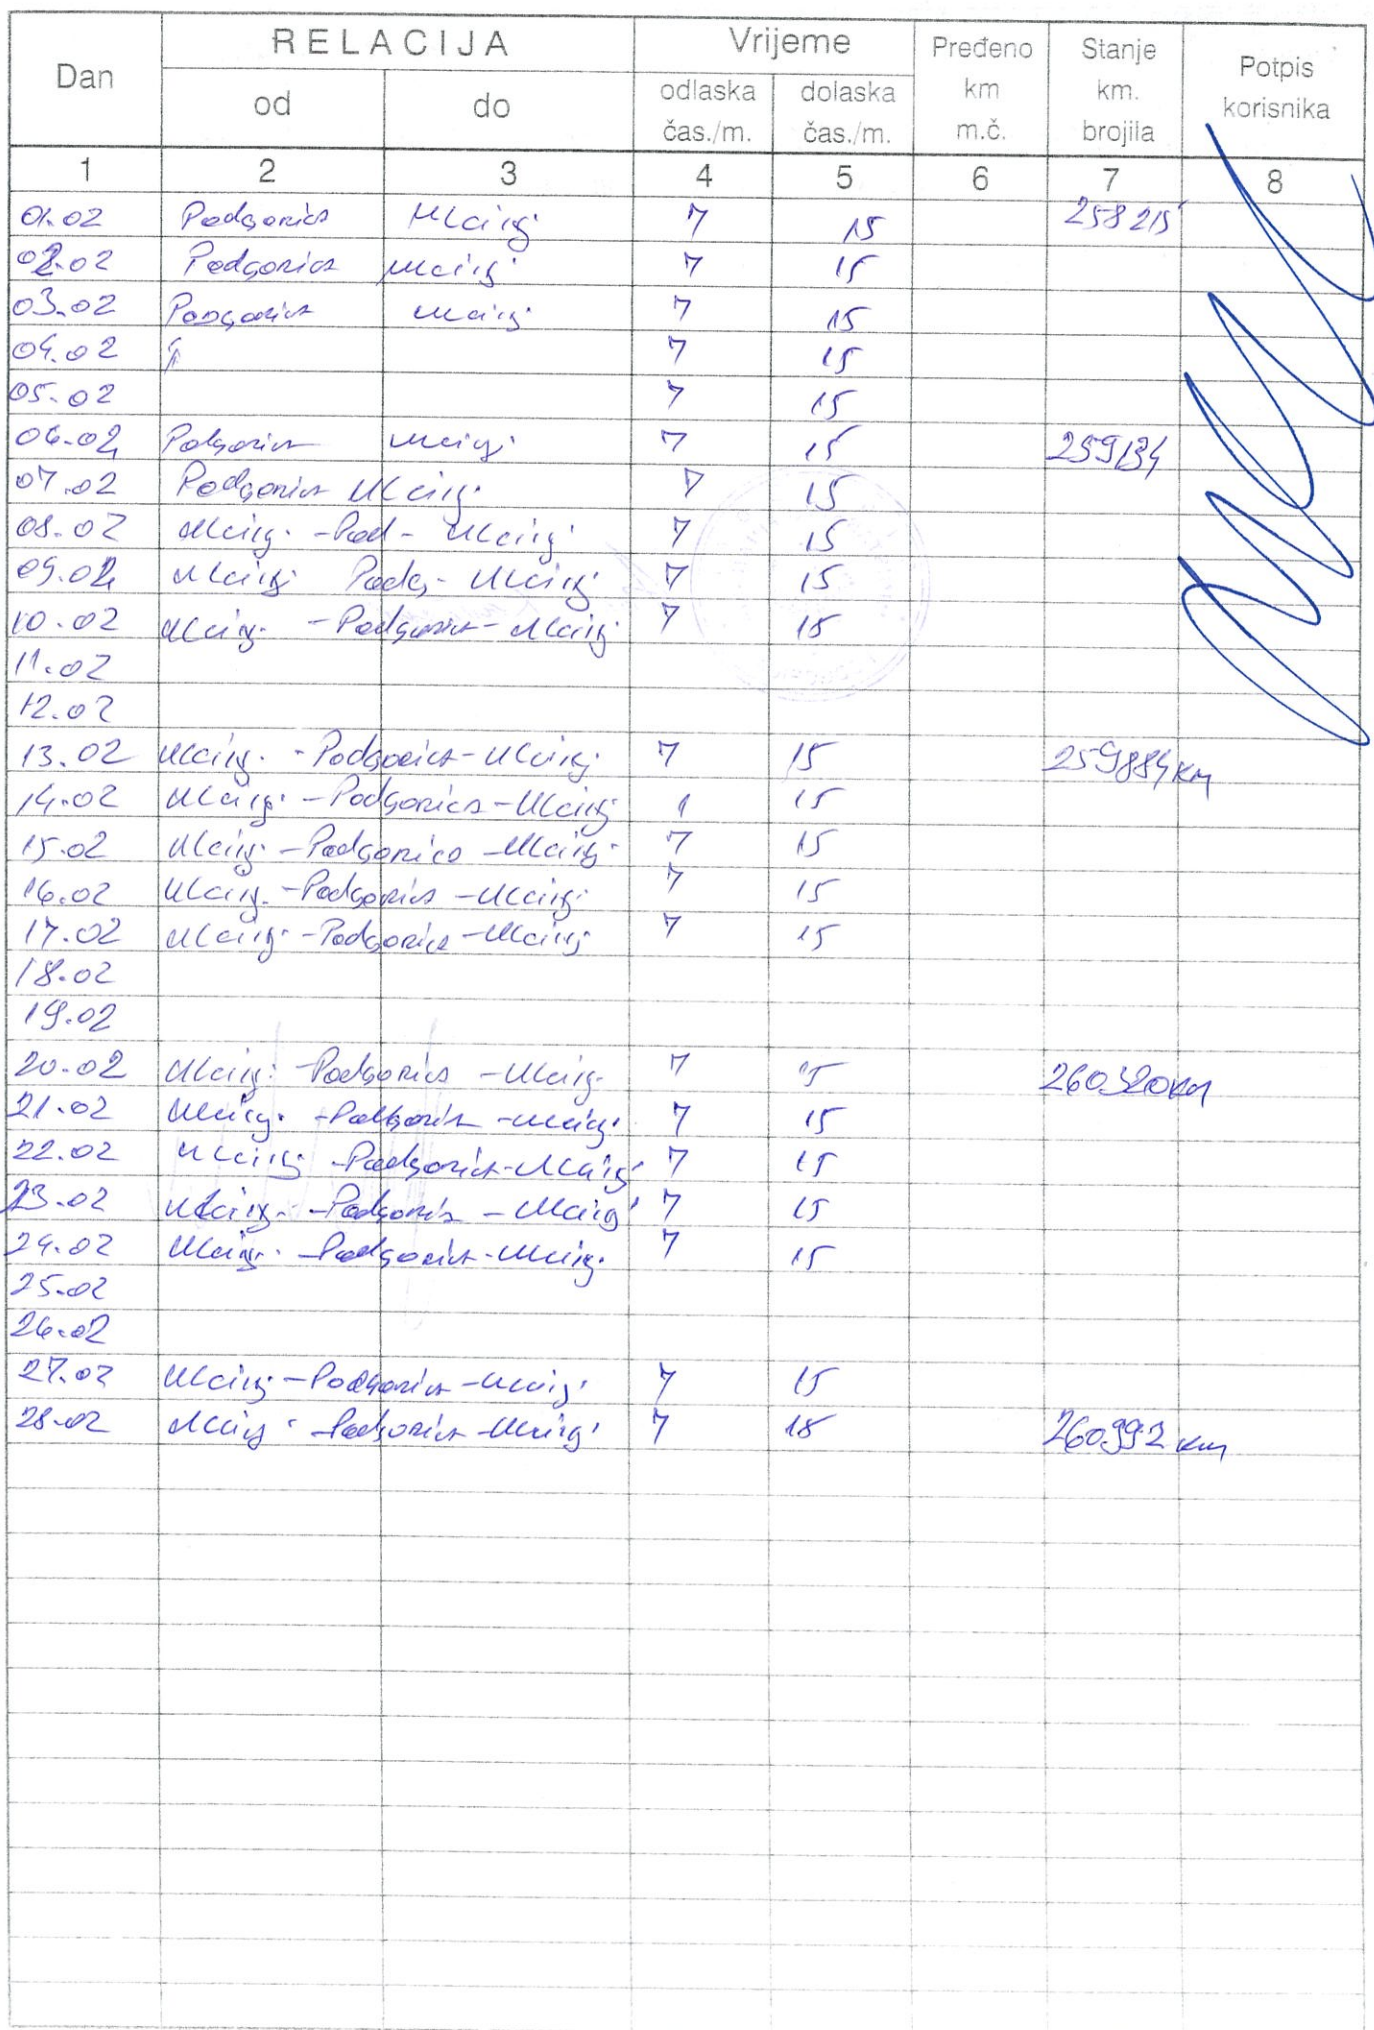 Dan RELACIJA Vrijeme Pređeno km m.č. Stanje km. brojila Potpis korisnika
od do odlaska čas./m. dolaska čas./m.
1 2 3 4 5 6 7 8
01.02 Podgorica Ulcinj 7 15 258215
02.02 Podgorica Ulcinj 7 15
03.02 Podgorica Ulcinj 7 15
04.02 7 15
05.02 7 15
06.02 Podgorica Ulcinj 7 15 259134
07.02 Podgorica Ulcinj 7 15
08.02 Ulcinj - Pod - Ulcinj 7 15
09.02 Ulcinj Podg - Ulcinj 7 15
10.02 Ulcinj - Podgorica - Ulcinj 7 15
11.02
12.02
13.02 Ulcinj - Podgorica - Ulcinj 7 15 259884 km
14.02 Ulcinj - Podgorica - Ulcinj 15
15.02 Ulcinj - Podgorica - Ulcinj 7 15
16.02 Ulcinj - Podgorica - Ulcinj 7 15
17.02 Ulcinj - Podgorica - Ulcinj 7 15
18.02
19.02
20.02 Ulcinj - Podgorica - Ulcinj 7 15
21.02 Ulcinj - Podgorica - Ulcinj 7 15
22.02 Ulcinj - Podgorica - Ulcinj 7 15
23.02 Ulcinj - Podgorica - Ulcinj 7 15
24.02 Ulcinj - Podgorica - Ulcinj 7 15
25.02
26.02
27.02 Ulcinj - Podgorica - Ulcinj 7 15
28.02 Ulcinj - Podgorica - Ulcinj 7 15 260992 km